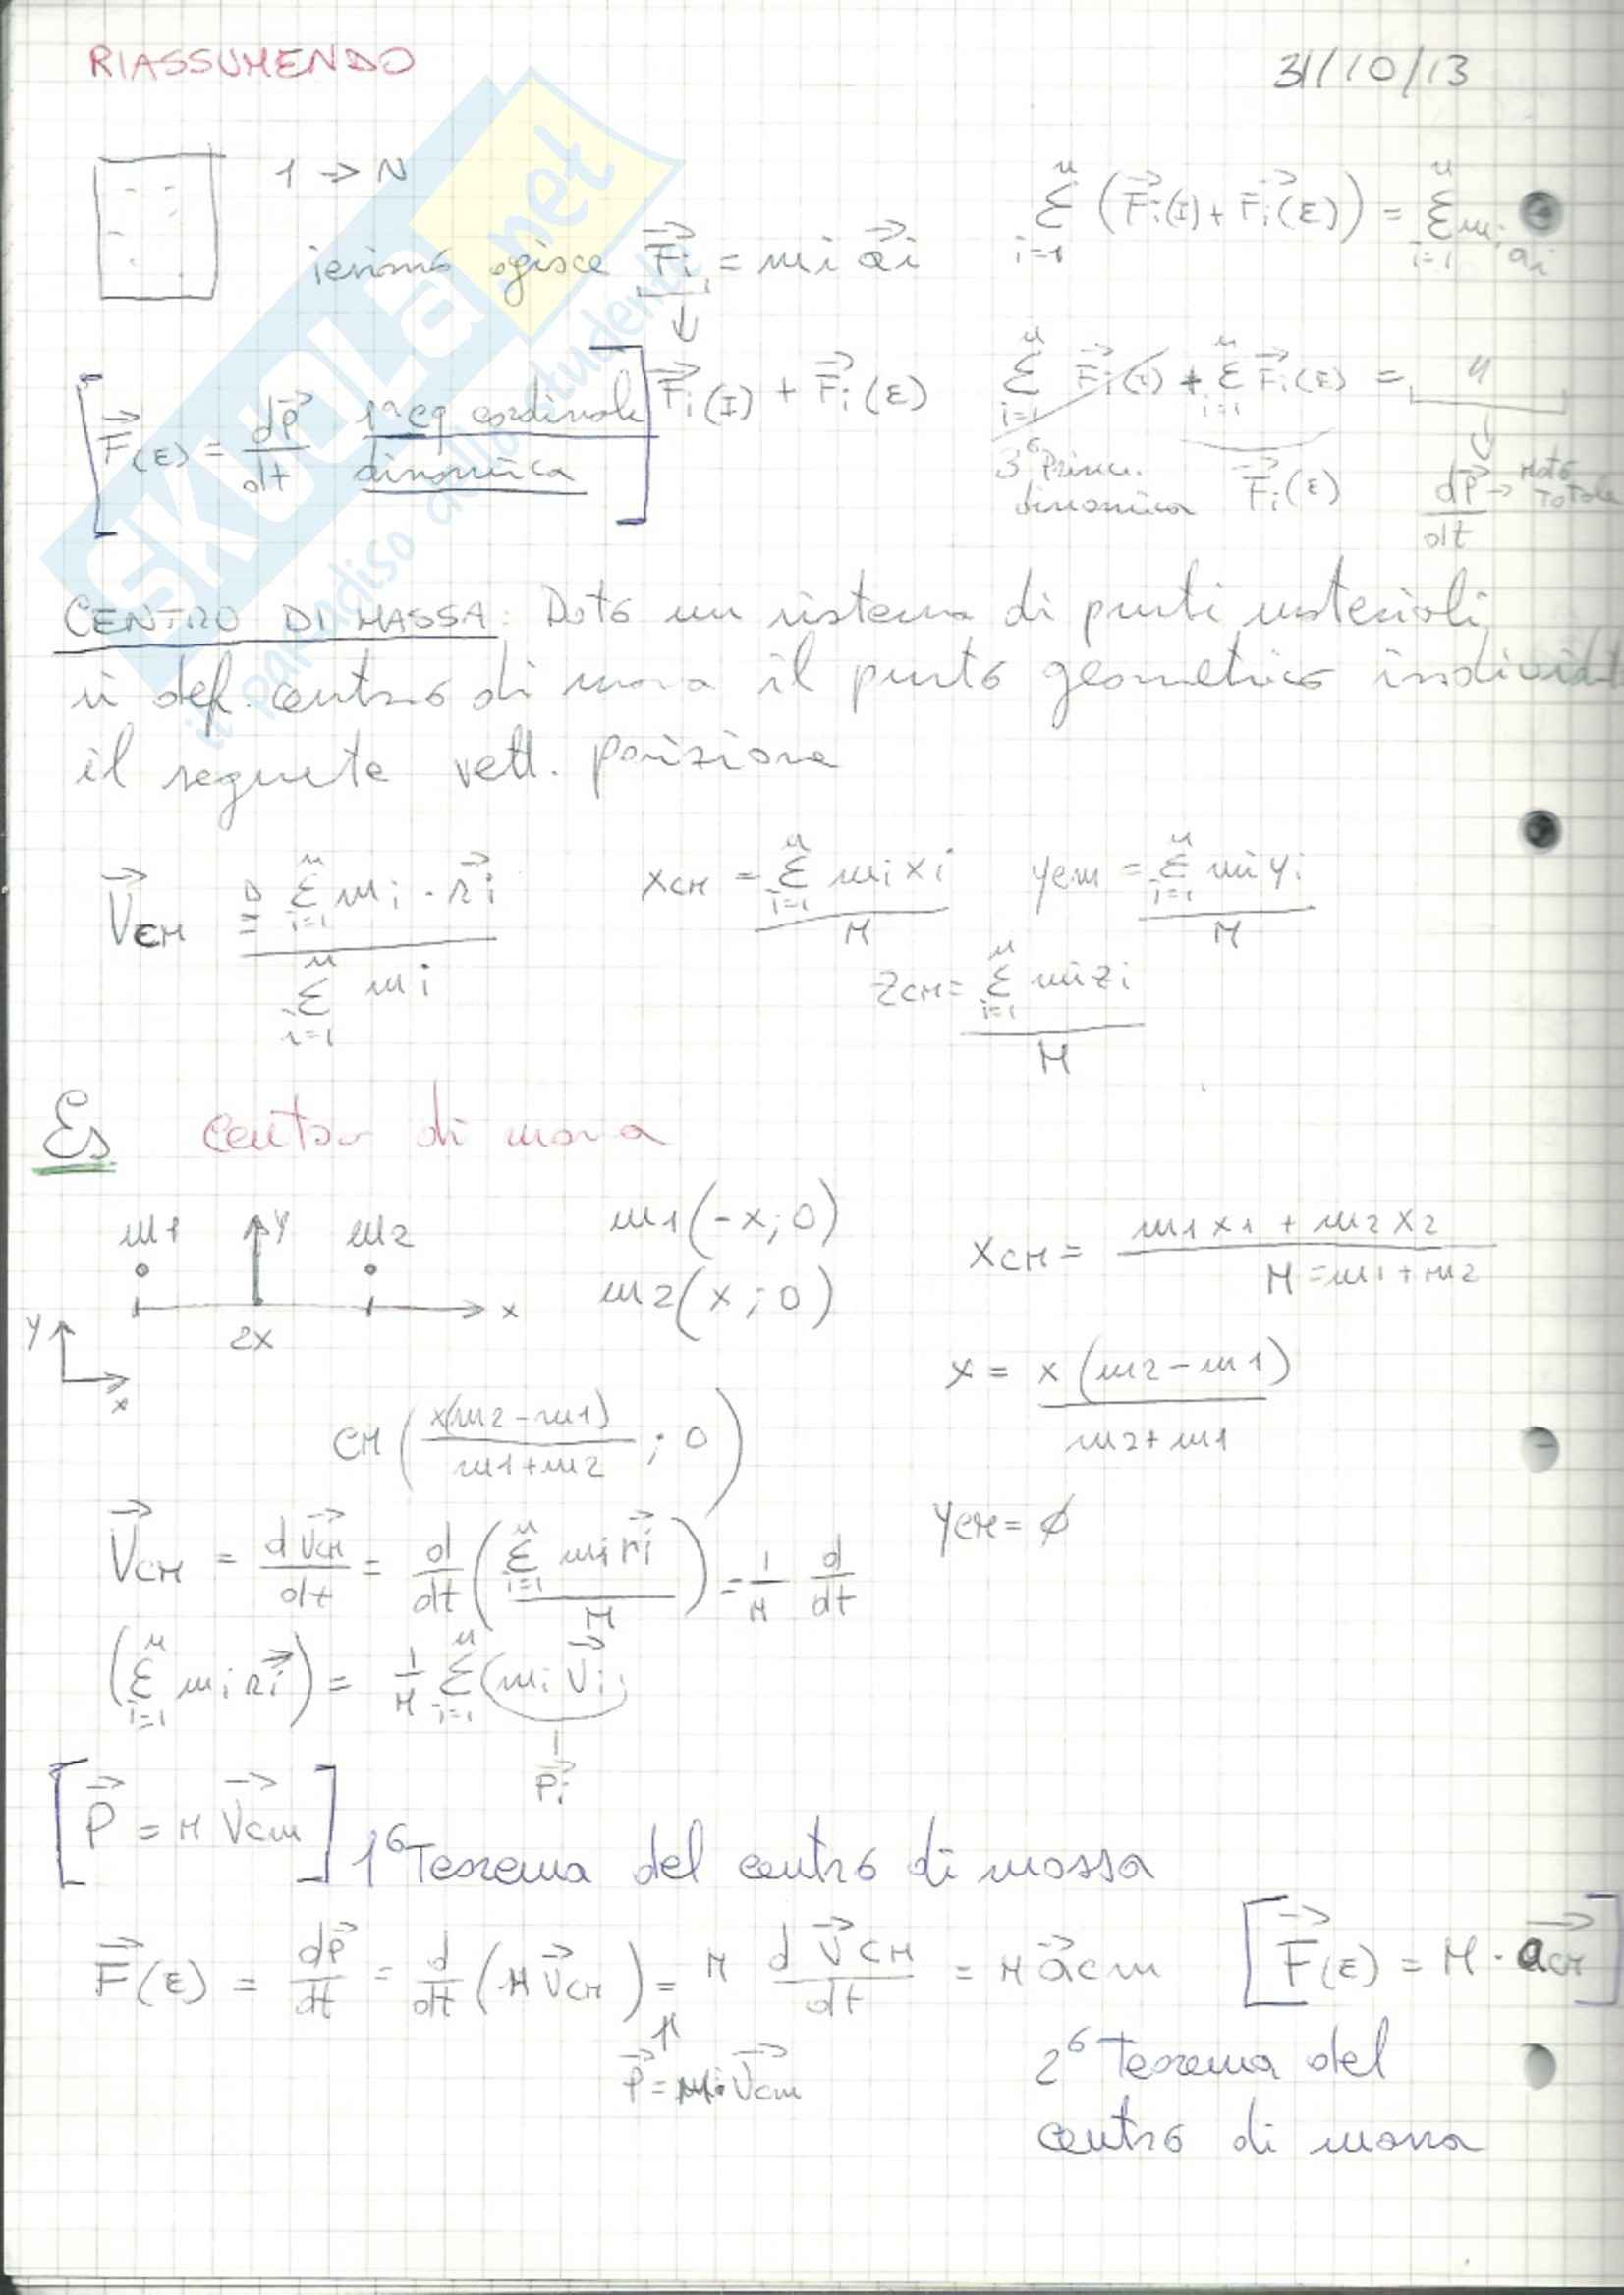 RIASSUMENDO 31/10/13
1 → N
iesimo agisce F⃗i = mi a⃗i
∑ⁿᵢ₌₁ (F⃗i(I) + F⃗i(E)) = ∑ⁿᵢ₌₁ mi ai
↓
[F⃗(E) = dp⃗/dt 1ª eq cardinale dinamica] F⃗i(I) + F⃗i(E)
∑ⁿᵢ₌₁ F⃗i(I) + ∑ⁿᵢ₌₁ F⃗i(E) = "
3° Princ. dinamica F⃗i(E) dP⃗/dt → Moto Totale
CENTRO DI MASSA: Dato un sistema di punti materiali
si def. centro di massa il punto geometrico
il seguente vett. posizione
V⃗CM ≜ ∑ⁿᵢ₌₁ mi · r⃗i / ∑ⁿᵢ₌₁ mi
xCM = ∑ⁿᵢ₌₁ mi xi / M
ycm = ∑ⁿᵢ₌₁ mi yi / M
zCM = ∑ⁿᵢ₌₁ mi zi / M
Es centro di massa
m1 y m2
x
2x
y
x
m1(-x; 0)
m2(x; 0)
xCM = m1 x1 + m2 x2 / M = m1 + m2
x = x (m2 - m1) / m2 + m1
CM (x(m2 - m1) / m1 + m2 ; 0)
yCM = ∅
V⃗CM = d V⃗CM / dt = d/dt (∑ⁿᵢ₌₁ mi r⃗i / M) = 1/M d/dt
(∑ⁿᵢ₌₁ mi r⃗i) = 1/M ∑ⁿᵢ₌₁ (mi V⃗i)
P⃗i
[P⃗ = M V⃗cm] 1° Teorema del centro di massa
F⃗(E) = dP⃗/dt = d/dt (M V⃗CM) = M d V⃗CM / dt = M a⃗cm [F⃗(E) = M · a⃗CM]
P⃗ = M · V⃗cm
2° Teorema del
centro di massa
SKUOLA.net
il paradiso dello studente